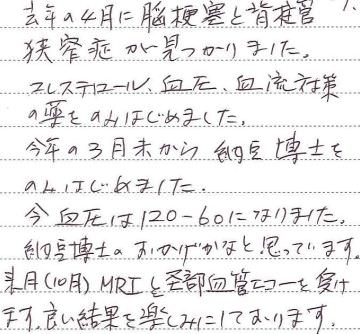 去年の4月に脳梗塞と脊柱管
狭窄症が見つかりました。
コレステロール、血圧、血流対策
の薬をのみはじめました。
今年の3月末から納豆博士を
のみはじめました。
今血圧は120-60になりました。
納豆博士のおかげかなと思っています。
来月(10月)MRIと頸部血管エコーを受け
ます。良い結果を楽しみにしております。